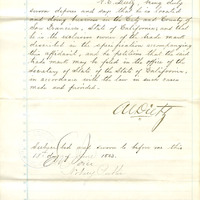 A. C. Dietz, being duly
sworn deposes and says that he is located
and doing business in the City and County of
San Francisco, State of California; and that
he is the exclusive owner of the trade mark
described in the specification accompanying
this affidavit, and he petitions that the said
trade mark may be filed in the office of the
Secretary of State of the State of California,
in accordance with the law in such cases
made and provided.
A. C. Dietz
Subscribed and sworn to before me this
day of June 1882.
Notary Public